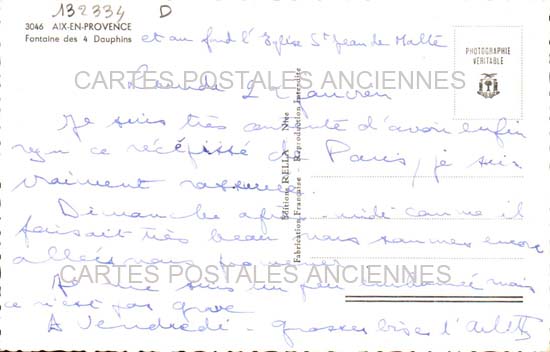 132334 D
3046 AIX-EN-PROVENCE
Fontaine des 4 Dauphins
et au fond l'Eglise St Jean de Malte
PHOTOGRAPHIE
VERITABLE
CARTES POSTALES ANCIENNES
Je suis très contente d'avoir enfin
reçu ce récépissé de Paris, je suis
vraiment rassurée.
Dimanche après-midi comme il
faisait très beau nous sommes encore
allés nous promener
CARTES POSTALES ANCIENNES
Je me suis un peu mais
ce n'est pas grave
A Vendredi - grosses bises d'Arlette
Editions RELLA Nice
Fabrication Française - Reproduction Interdite